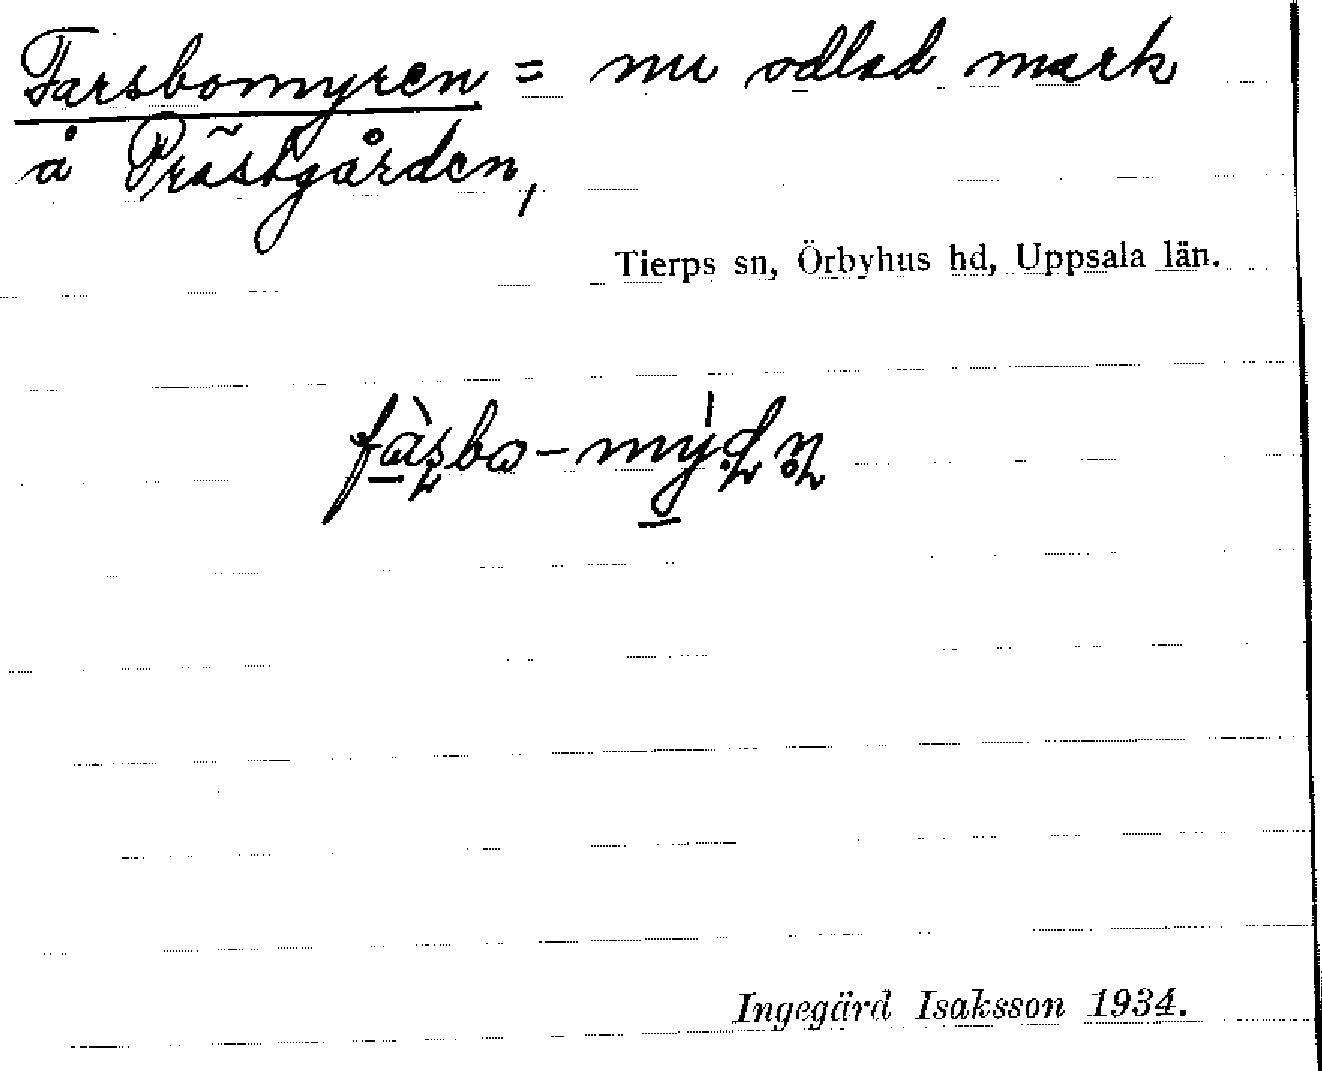 Farsbomyren = nu odlad mark
å Prästgården,
Tierps sn, Örbyhus hd, Uppsala län.
Ingegärd Isaksson 1934.